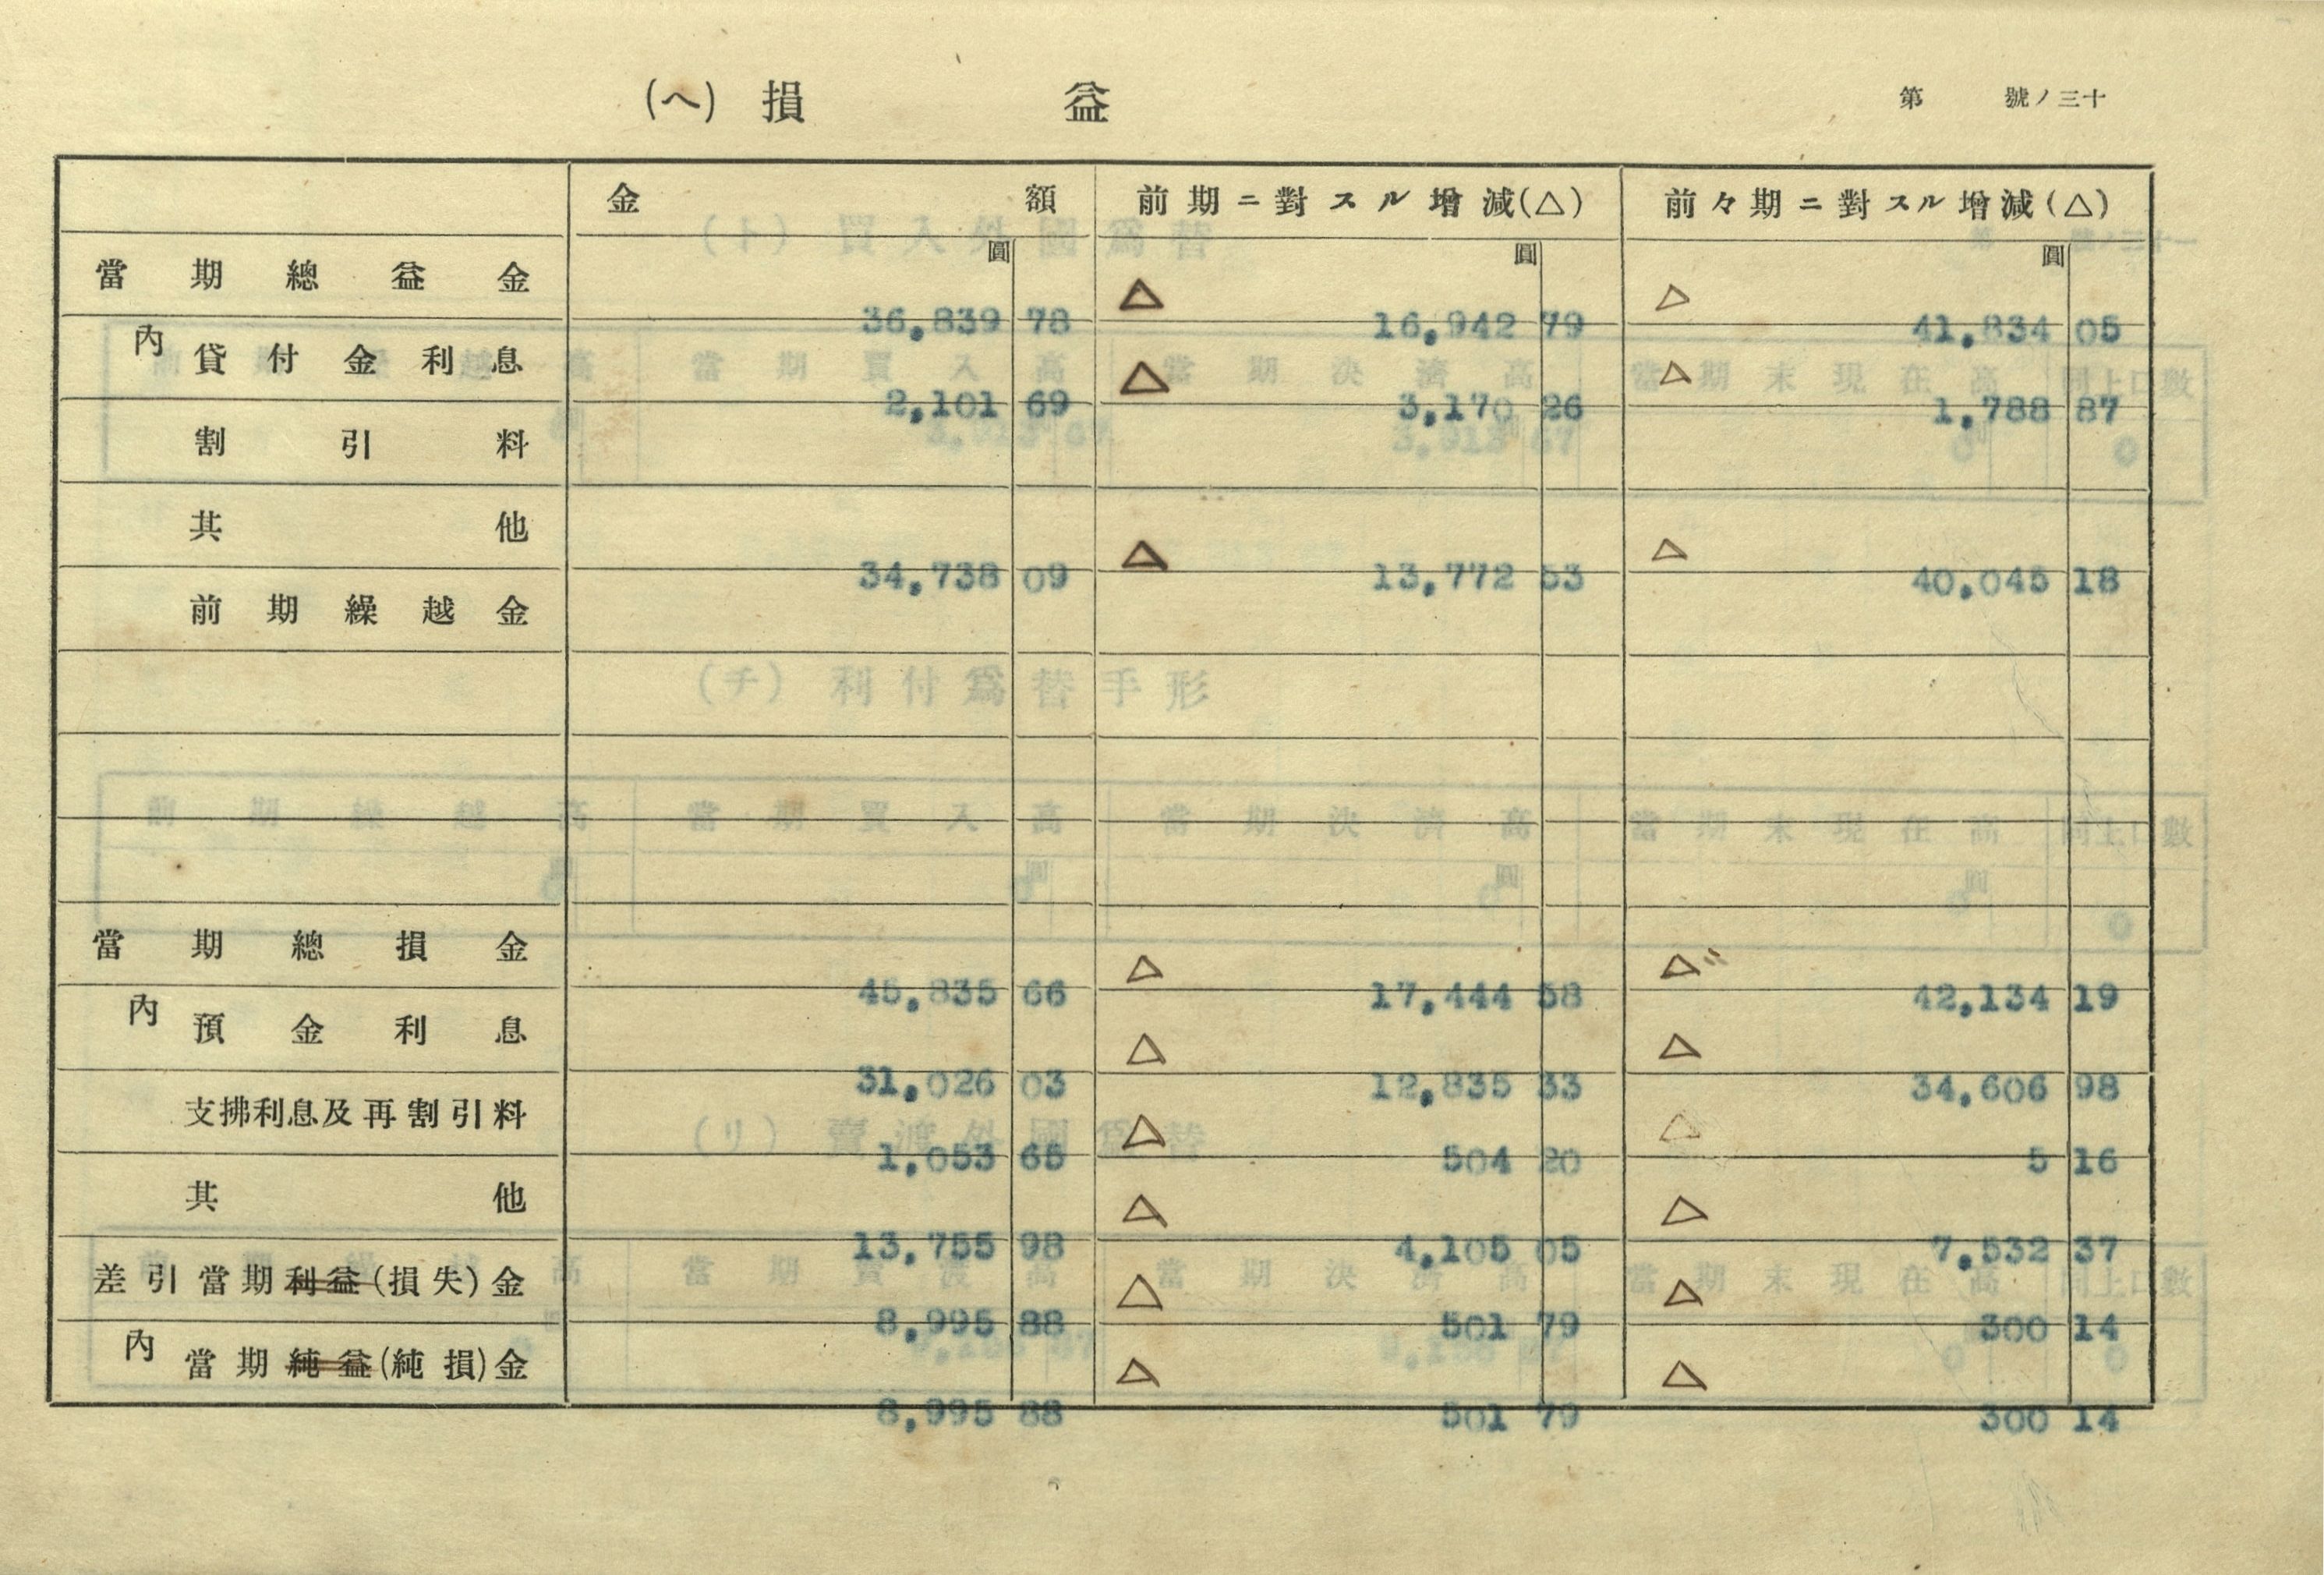 (ヘ) 損益
第 號ノ三十
金額 前期ニ對スル增減(△) 前々期ニ對スル增減(△)
圓 圓 圓
當期總益金 36,839 78 △ 16,942 79 △ 41,834 05
內 貸付金利息 2,101 69 △ 3,170 26 △ 1,788 87
割引料
其他 34,738 09 △ 13,772 53 △ 40,045 18
前期繰越金
當期總損金 45,835 66 △ 17,444 58 △ 42,134 19
內 預金利息 31,026 03 △ 12,835 33 △ 34,606 98
支拂利息及再割引料 1,053 65 △ 504 20 △ 5 16
其他 13,755 98 △ 4,105 05 △ 7,532 37
差引當期利益(損失)金 8,995 88 △ 501 79 △ 300 14
內 當期純益(純損)金 8,995 88 △ 501 79 △ 300 14